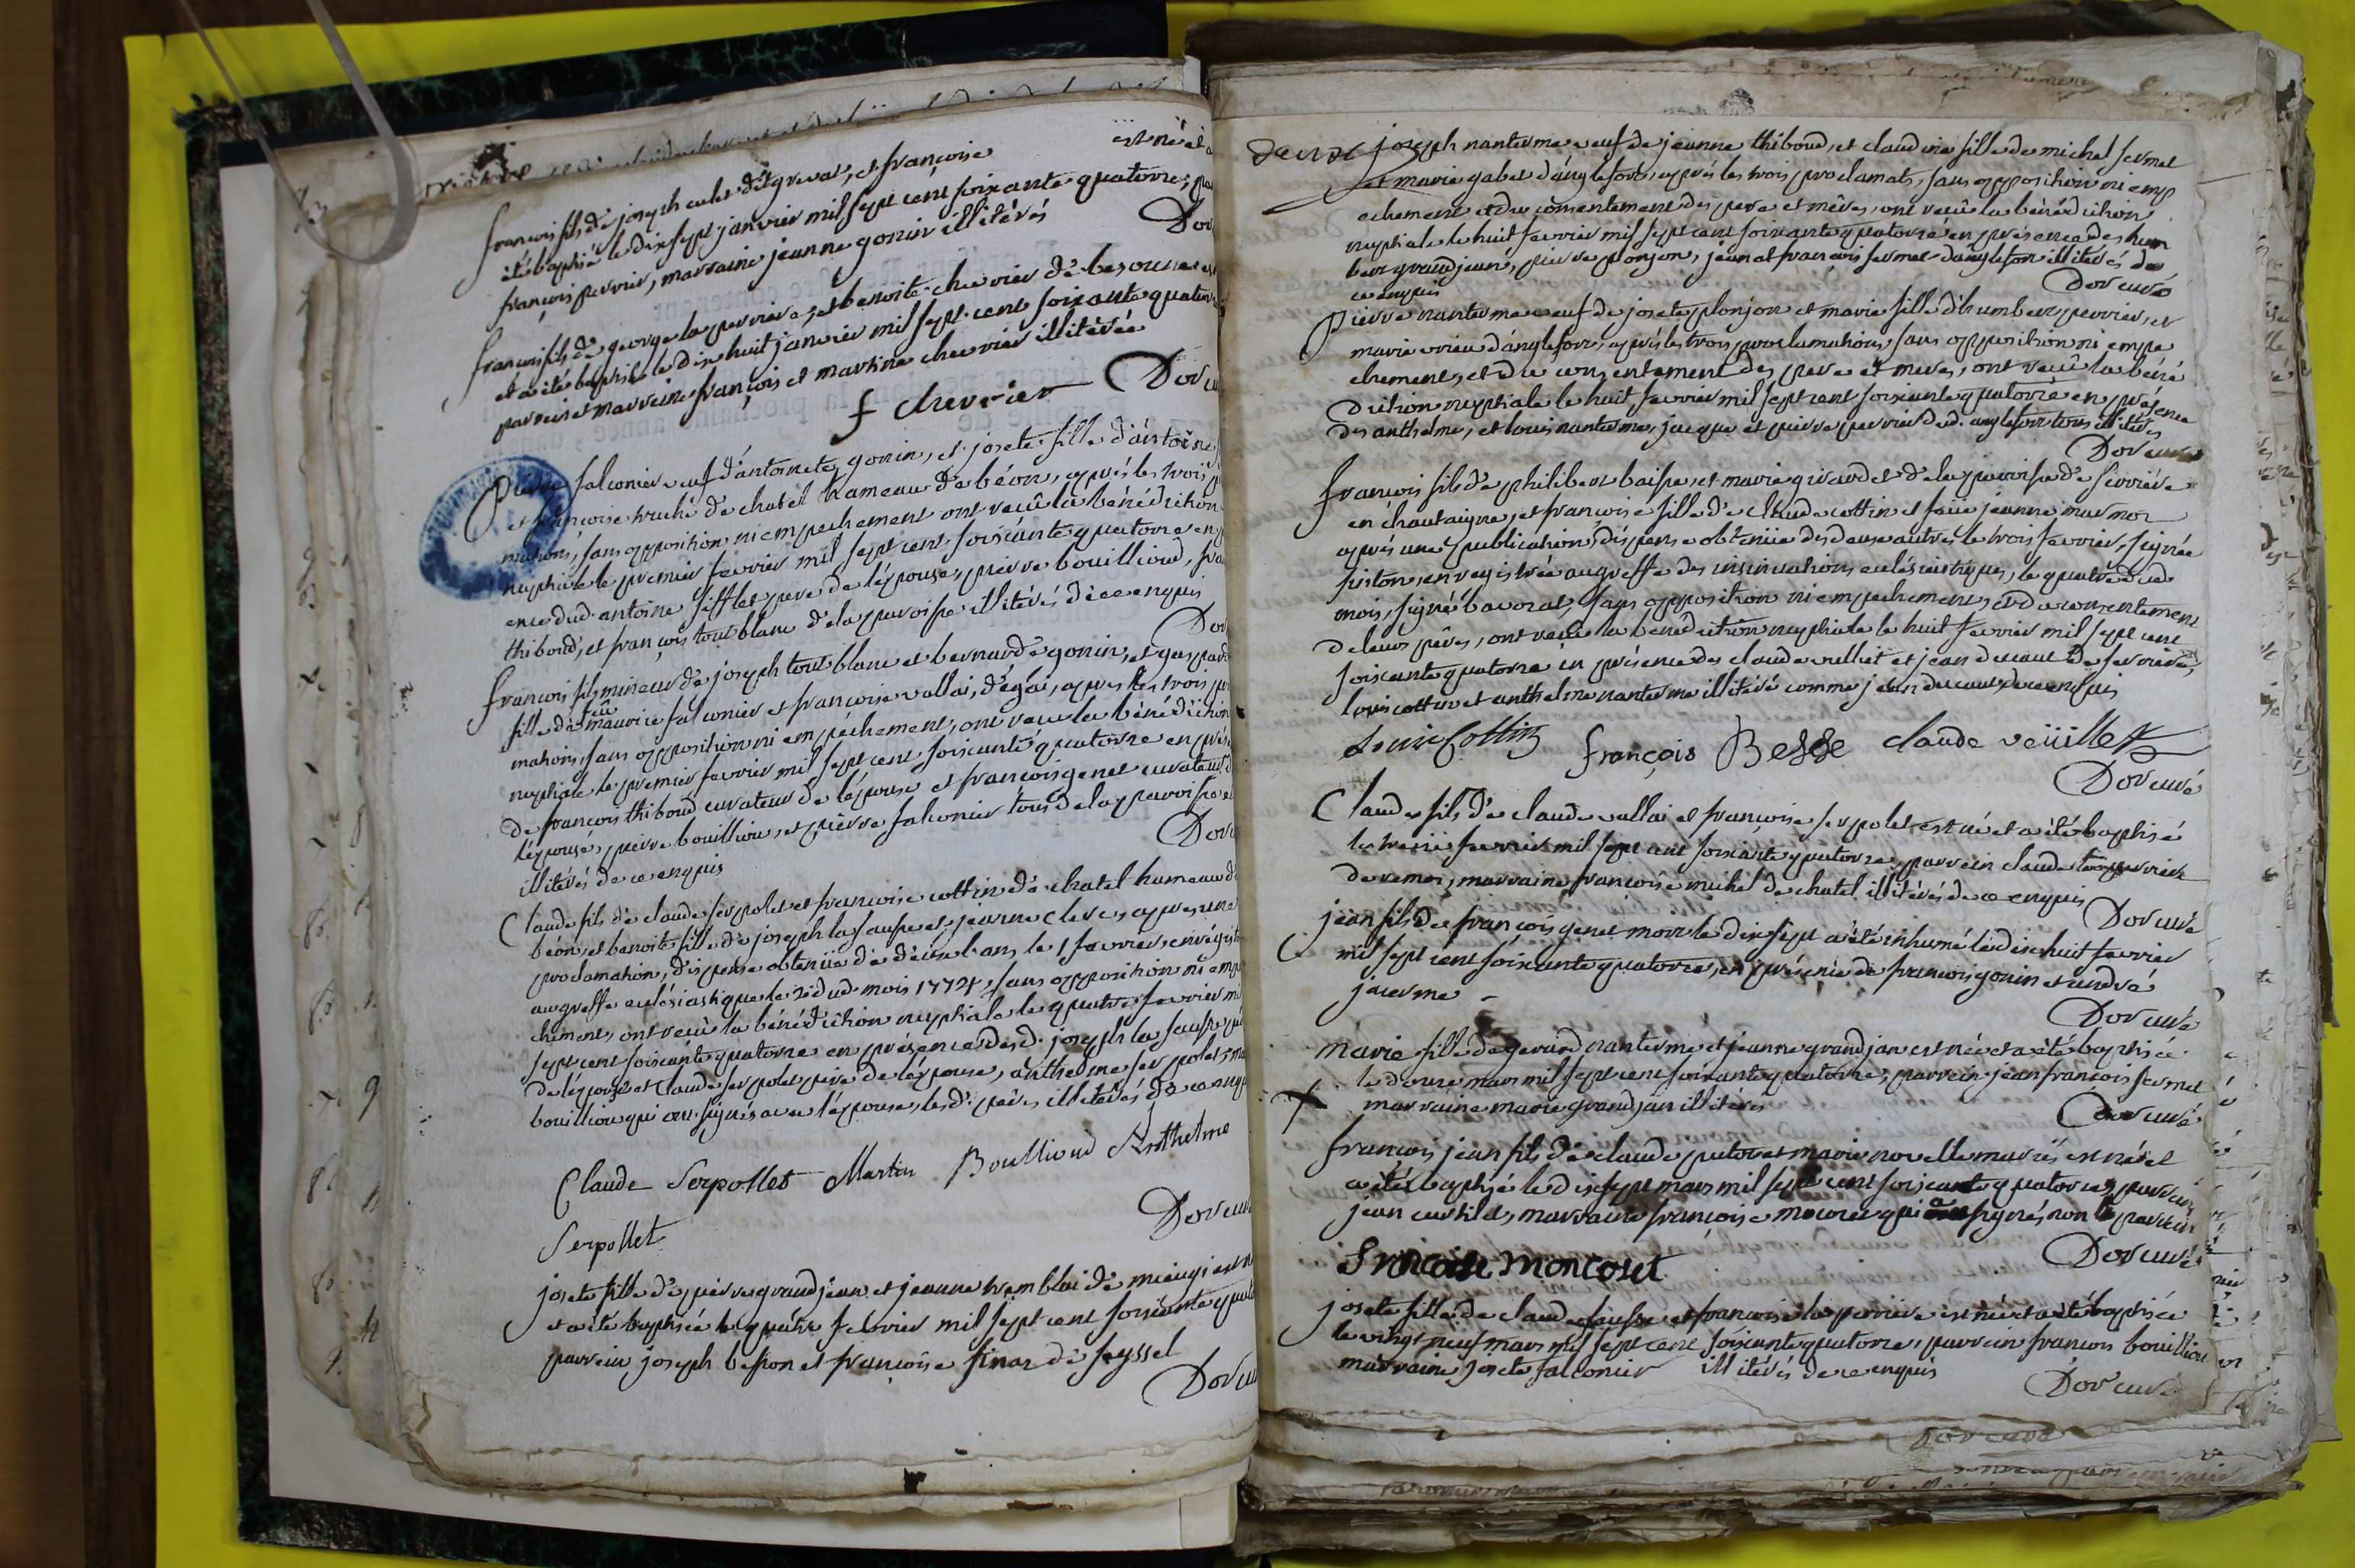 françois fils de joseph culet dit grevat, et françoise est né et a
été baptisé le dix sept janvier mil sept cent soixante quatorze,
françois perrier, marraine jeanne gonin illitérés
Dor
françois fils de george la perriere, et benoite chevrier de
et a été baptisé le dix huit janvier mil sept cent soixante quatorze
parrein et marreine françois et martine chevrier illitérée
f chevrier Dor cu
Pierre falconier veuf d'antoinete gonin, et josete fille d'antoine
et françoise truché de chatel hameau de béon, aprés les trois
mations, sans opposition ni empechement ont reçû la bénédiction
nuptiale le premier fevrier mil sept cent soixante quatorze en
ence dud. antoine sifflet pere de l'épouse, pierre bouilloud,
thiboud, et françois tout blanc de la paroisse illitérés de ce enquis
Dor
françois fils mineur de joseph tout blanc et bernarde gonin, et gaspard
fille de feu maurice falconier et françoise vallai, d'égai, aprés les trois
mations, sans opposition ni empéchement, ont reçu la bénédiction
nuptiale le premier fevrier mil sept cent soixante quatorze en
de françois thiboud curateur de l'épouse et françois genet curateur
l'épouse, pierre bouilliou, et piérre falconier tous de la paroisse
illitérés de ce enquis Dor
Claude fils de claude serpolet et françoise cottin de chatel hameau de
béon, et benoite fille de joseph la sausse et jeanne clere, aprés une
proclamation, dispense obtenüe de deux bans le 1 fevrier, enrégit
au greffe eclésiastique le 2 dud. mois 1774, sans opposition ni empe
chement, ont reçû la bénédiction nuptiale le quatre fevrier mi
sept cent soixante quatorze en présence desd. joseph la sausse
de l'épouse et claude serpolet pére de l'épouse, anthelme serpolet,
bouilliou qui ont signés avec l'épouse, les d. péres illitérés de ce enqu
Claude Serpollet Martin Boullioud Anthelme
Serpollet Dor cur
josete fille de pierre grandjean et jeanne tremblai de mieugi est n
et a été baptisée le quatre fevrier mil sept cent soixante quat
parrein joseph besson et françoise finaz de seyssel
Dor cu
joseph nanterme veuf de jeanne thiboud, et claudine fille de michel fermet
et marie gabet d'anglefort, aprés les trois proclamats, sans opposition ni emp
echement et du consentement des pere et méres, ont reçû la bénédiction
nuptiale le huit fevrier mil sept cent soixante quatorze en présence des hum
bert grandjean, pierre plonjon, jean et françois fermet d'anglefort illitérés de
ce enquis Dor curé
Pierre nanterme veuf de josete plonjon et marie fille d'humbert perrier, et
marie d'anglefort, aprés les trois proclamations, sans opposition ni empe
chement, et du consentement des pere et meres, ont reçû la béné
diction nuptiale le huit fevrier mil sept cent soixante quatorze en présence
des anthelme, et louis nanterme, jacque et pierre perrier dud. anglefort tous illitérés
Dor curé
françois fils de philibert baisse, et marie girardet de la paroisse de sérriére
en chautaigne, et françoise fille de claude cottin et feue jeanne marmoz
aprés une publication, dispense obtenüe des deux autres le trois fevrier, signée
piston, enregistrée au greffe des insinuations eclésiastiques, le quatre dud.
mois, signé bavozat, sans opposition ni empechement, et du consentement
de leurs péres, ont reçû la bénédiction nuptiale le huit fevrier mil sept cent
soixante quatorze en présence des claude vulliet et jean ducaut de serriére,
louis cottin et anthelme nanterme illitéré comme jean ducaut de ce enquis
Louis Cottin françois Besse claude veüillet
Dor curé
Claude fils de claude vallai et françoise serpolet est né et a été baptisé
le treize fevrier mil sept cent soixante quatorze, parrein claude la perriere
de remoz, marraine françoise michel de chatel illitérés de ce enquis
Dor curé
jean fils de françois genet mort le dix sept a été inhumé le dix huit fevrier
mil sept cent soixante quatorze, en présence de françois gonin et andré
jacerme
Dor curé
marie fille de gerard nanterme et jeanne grandjan est née et a été baptisée
le douze mars mil sept cent soixante quatorze, parrein jean françois fermet
marraine marie grandjan illitérés
Dor curé
françois jean fils de claude putot et marie novelle mariés est né et
a été baptisé le dix sept mars mil sept cent soixante quatorze, parrein
jean curtilet, marraine françoise mocozet qui a signés non le parrein
Dor curé
francoise moncoset
josete fille de claude sausse et françoise la perriere est née et a été baptisée
le vingt neuf mars mil sept cent soixante quatorze, parrein françois bouilliou
marraine josete falconier illitérés de ce enquis
Dor curé